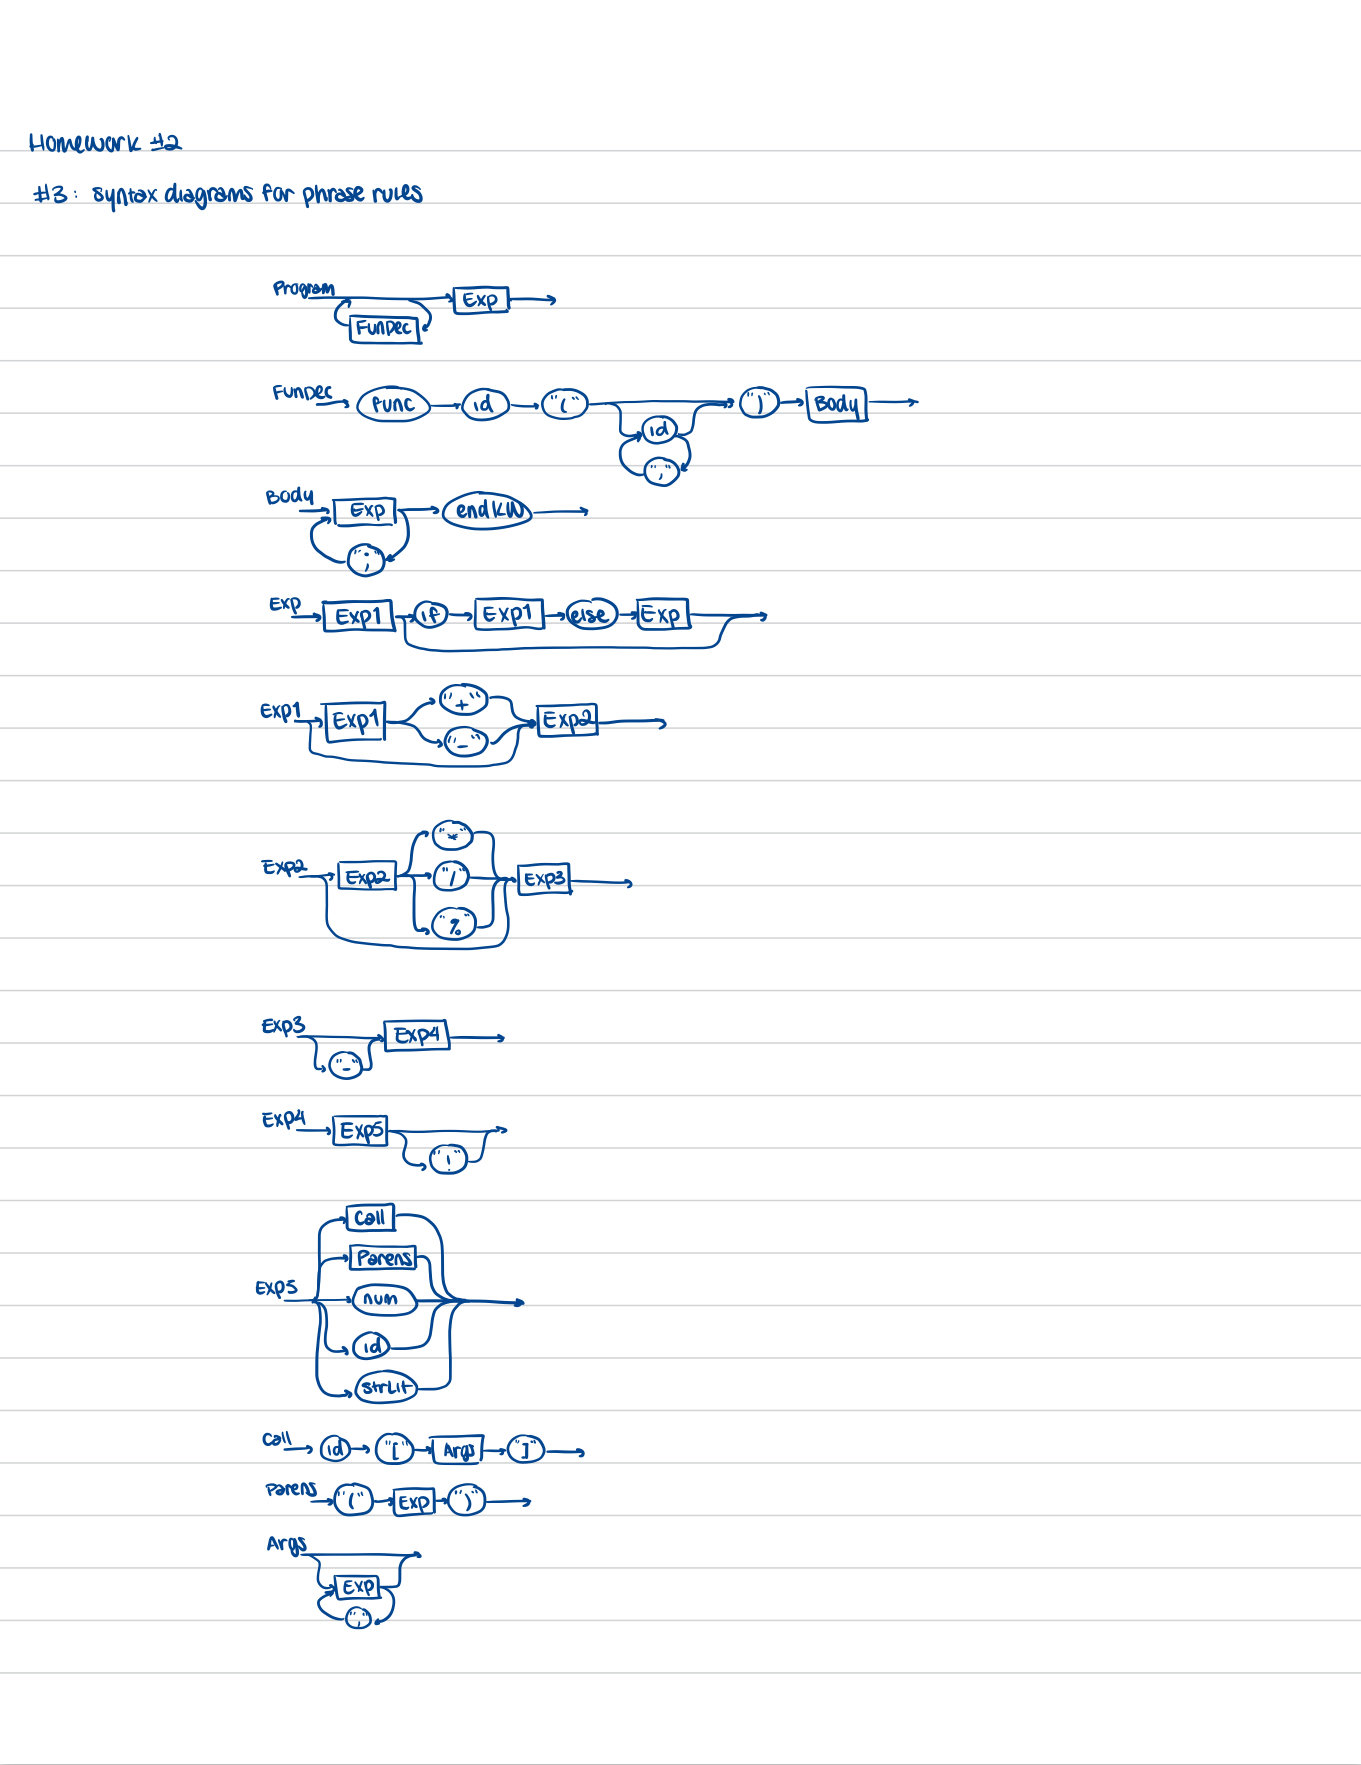 Homework #2
#3: syntax diagrams for phrase rules
Program Exp
FunDec
FunDec func id "(" ")" Body
id
","
Body Exp endKW
";"
Exp Exp1 if Exp1 else Exp
"+"
Exp1 Exp1 Exp2
"-"
"*"
Exp2 Exp2 "/" Exp3
"%"
Exp3 Exp4
"-"
Exp4 Exp5
"!"
Call
Parens
Exp5 num
id
strLit
Call id "[" Args "]"
Parens "(" Exp ")"
Args
Exp
","